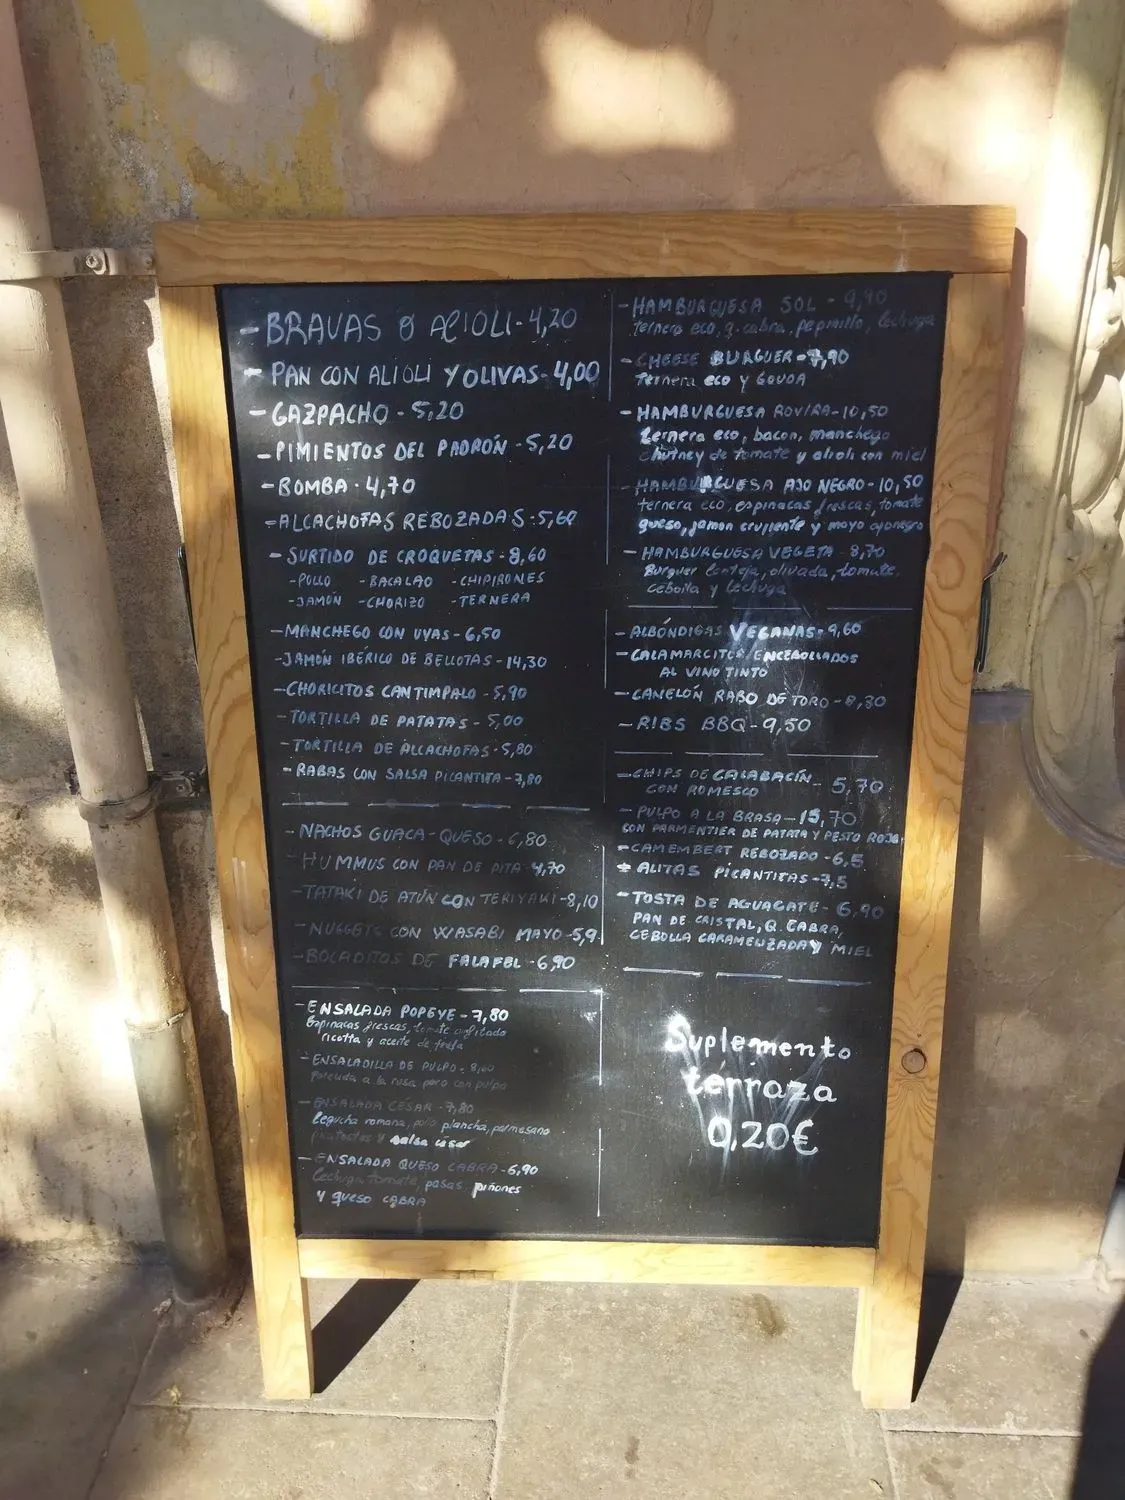 - BRAVAS O ALIOLI - 4,20
- PAN CON ALIOLI Y OLIVAS - 4,00
- GAZPACHO - 5,20
- PIMIENTOS DEL PADRÓN - 5,20
- BOMBA - 4,70
- ALCACHOFAS REBOZADAS - 5,60
- SURTIDO DE CROQUETAS - 8,60
- POLLO - BACALAO - CHIPIRONES
- JAMÓN - CHORIZO - TERNERA
- MANCHEGO CON UVAS - 6,50
- JAMÓN IBÉRICO DE BELLOTAS - 14,30
- CHORICITOS CANTIMPALO - 5,90
- TORTILLA DE PATATAS - 5,00
- TORTILLA DE ALCACHOFAS - 5,80
- RABAS CON SALSA PICANTITA - 7,80
- NACHOS GUACA-QUESO - 6,80
- HUMMUS CON PAN DE PITA - 4,70
- TATAKI DE ATÚN CON TERIYAKI - 8,10
- NUGGETS CON WASABI MAYO - 5,9
- BOCADITOS DE FALAFEL - 6,90
- ENSALADA POPEYE - 7,80
Espinacas frescas, tomate confitado
ricotta y aceite de trufa
- ENSALADILLA DE PULPO -
a la rusa pero con pulpo
- ENSALADA CÉSAR - 7,80
lechuga romana, pollo plancha, parmesano
y salsa césar
- ENSALADA QUESO CABRA - 6,90
lechuga, tomate, pasas, piñones
y queso CABRA
- HAMBURGUESA SOL - 9,90
ternera eco, q. cabra, pepinillo, lechuga
- CHEESE BURGUER - 7,90
Ternera eco y GOUDA
- HAMBURGUESA ROVIRA - 10,50
ternera eco, bacon, manchego
chutney de tomate y alioli con miel
- HAMBURGUESA AJO NEGRO - 10,50
ternera eco, espinacas frescas, tomate
queso, jamon crujiente y mayo ajonegro
- HAMBURGUESA VEGETA - 8,70
Burguer lenteja, olivada, tomate,
cebolla y lechuga
- ALBÓNDIGAS VEGANAS - 9,60
- CALAMARCITOS ENCEBOLLADOS
AL VINO TINTO
- CANELÓN RABO DE TORO - 8,30
- RIBS BBQ - 9,50
- CHIPS DE CALABACÍN - 5,70
CON ROMESCO
- PULPO A LA BRASA - 15,70
CON PARMENTIER DE PATATA Y PESTO ROJO
- CAMEMBERT REBOZADO - 6,5
- ALITAS PICANTITAS - 7,5
- TOSTA DE AGUACATE - 6,90
PAN DE CRISTAL, Q. CABRA,
CEBOLLA CARAMELIZADA Y MIEL
Suplemento
terraza
0,20€